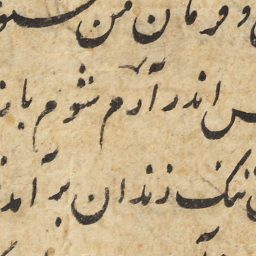 و فرمان من
اندر آدم شوم با
تنک زندان بر آمد